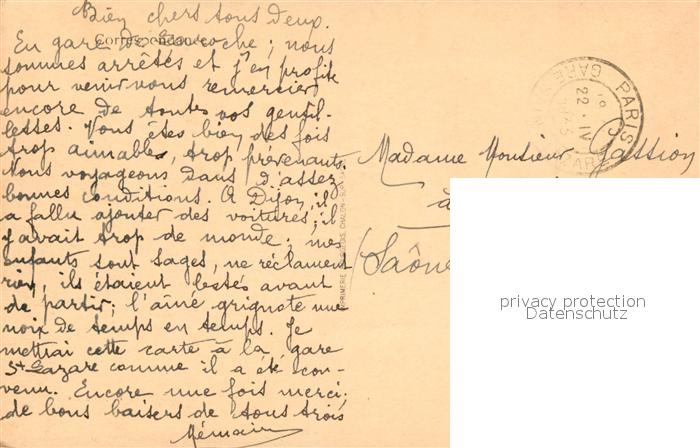 Bien chers tous deux.
Correspondance
En gare de Laroche ; nous
sommes arrêtés et j'en profite
pour venir vous remercier
encore de toutes vos gentil-
lesses. Vous êtes bien des fois
trop aimables, trop prévenants.
Nous voyageons dans d'assez
bonnes conditions. A Dijon, il
a fallu ajouter des voitures ; il
y avait trop de monde ; mes
enfants sont sages, ne réclament
rien, ils étaient lestés avant
de partir ; l'aîné grignote une
noix de temps en temps. Je
mettrai cette carte à la gare
St Lazare comme il a été con-
venu. Encore une fois merci.
de bons baisers de tous trois
PARIS
GARE
22 - IV
Madame Monsieur Gassion
à
(Saône
IMPRIMERIE CHALON-SUR-SAÔNE
privacy protection
Datenschutz